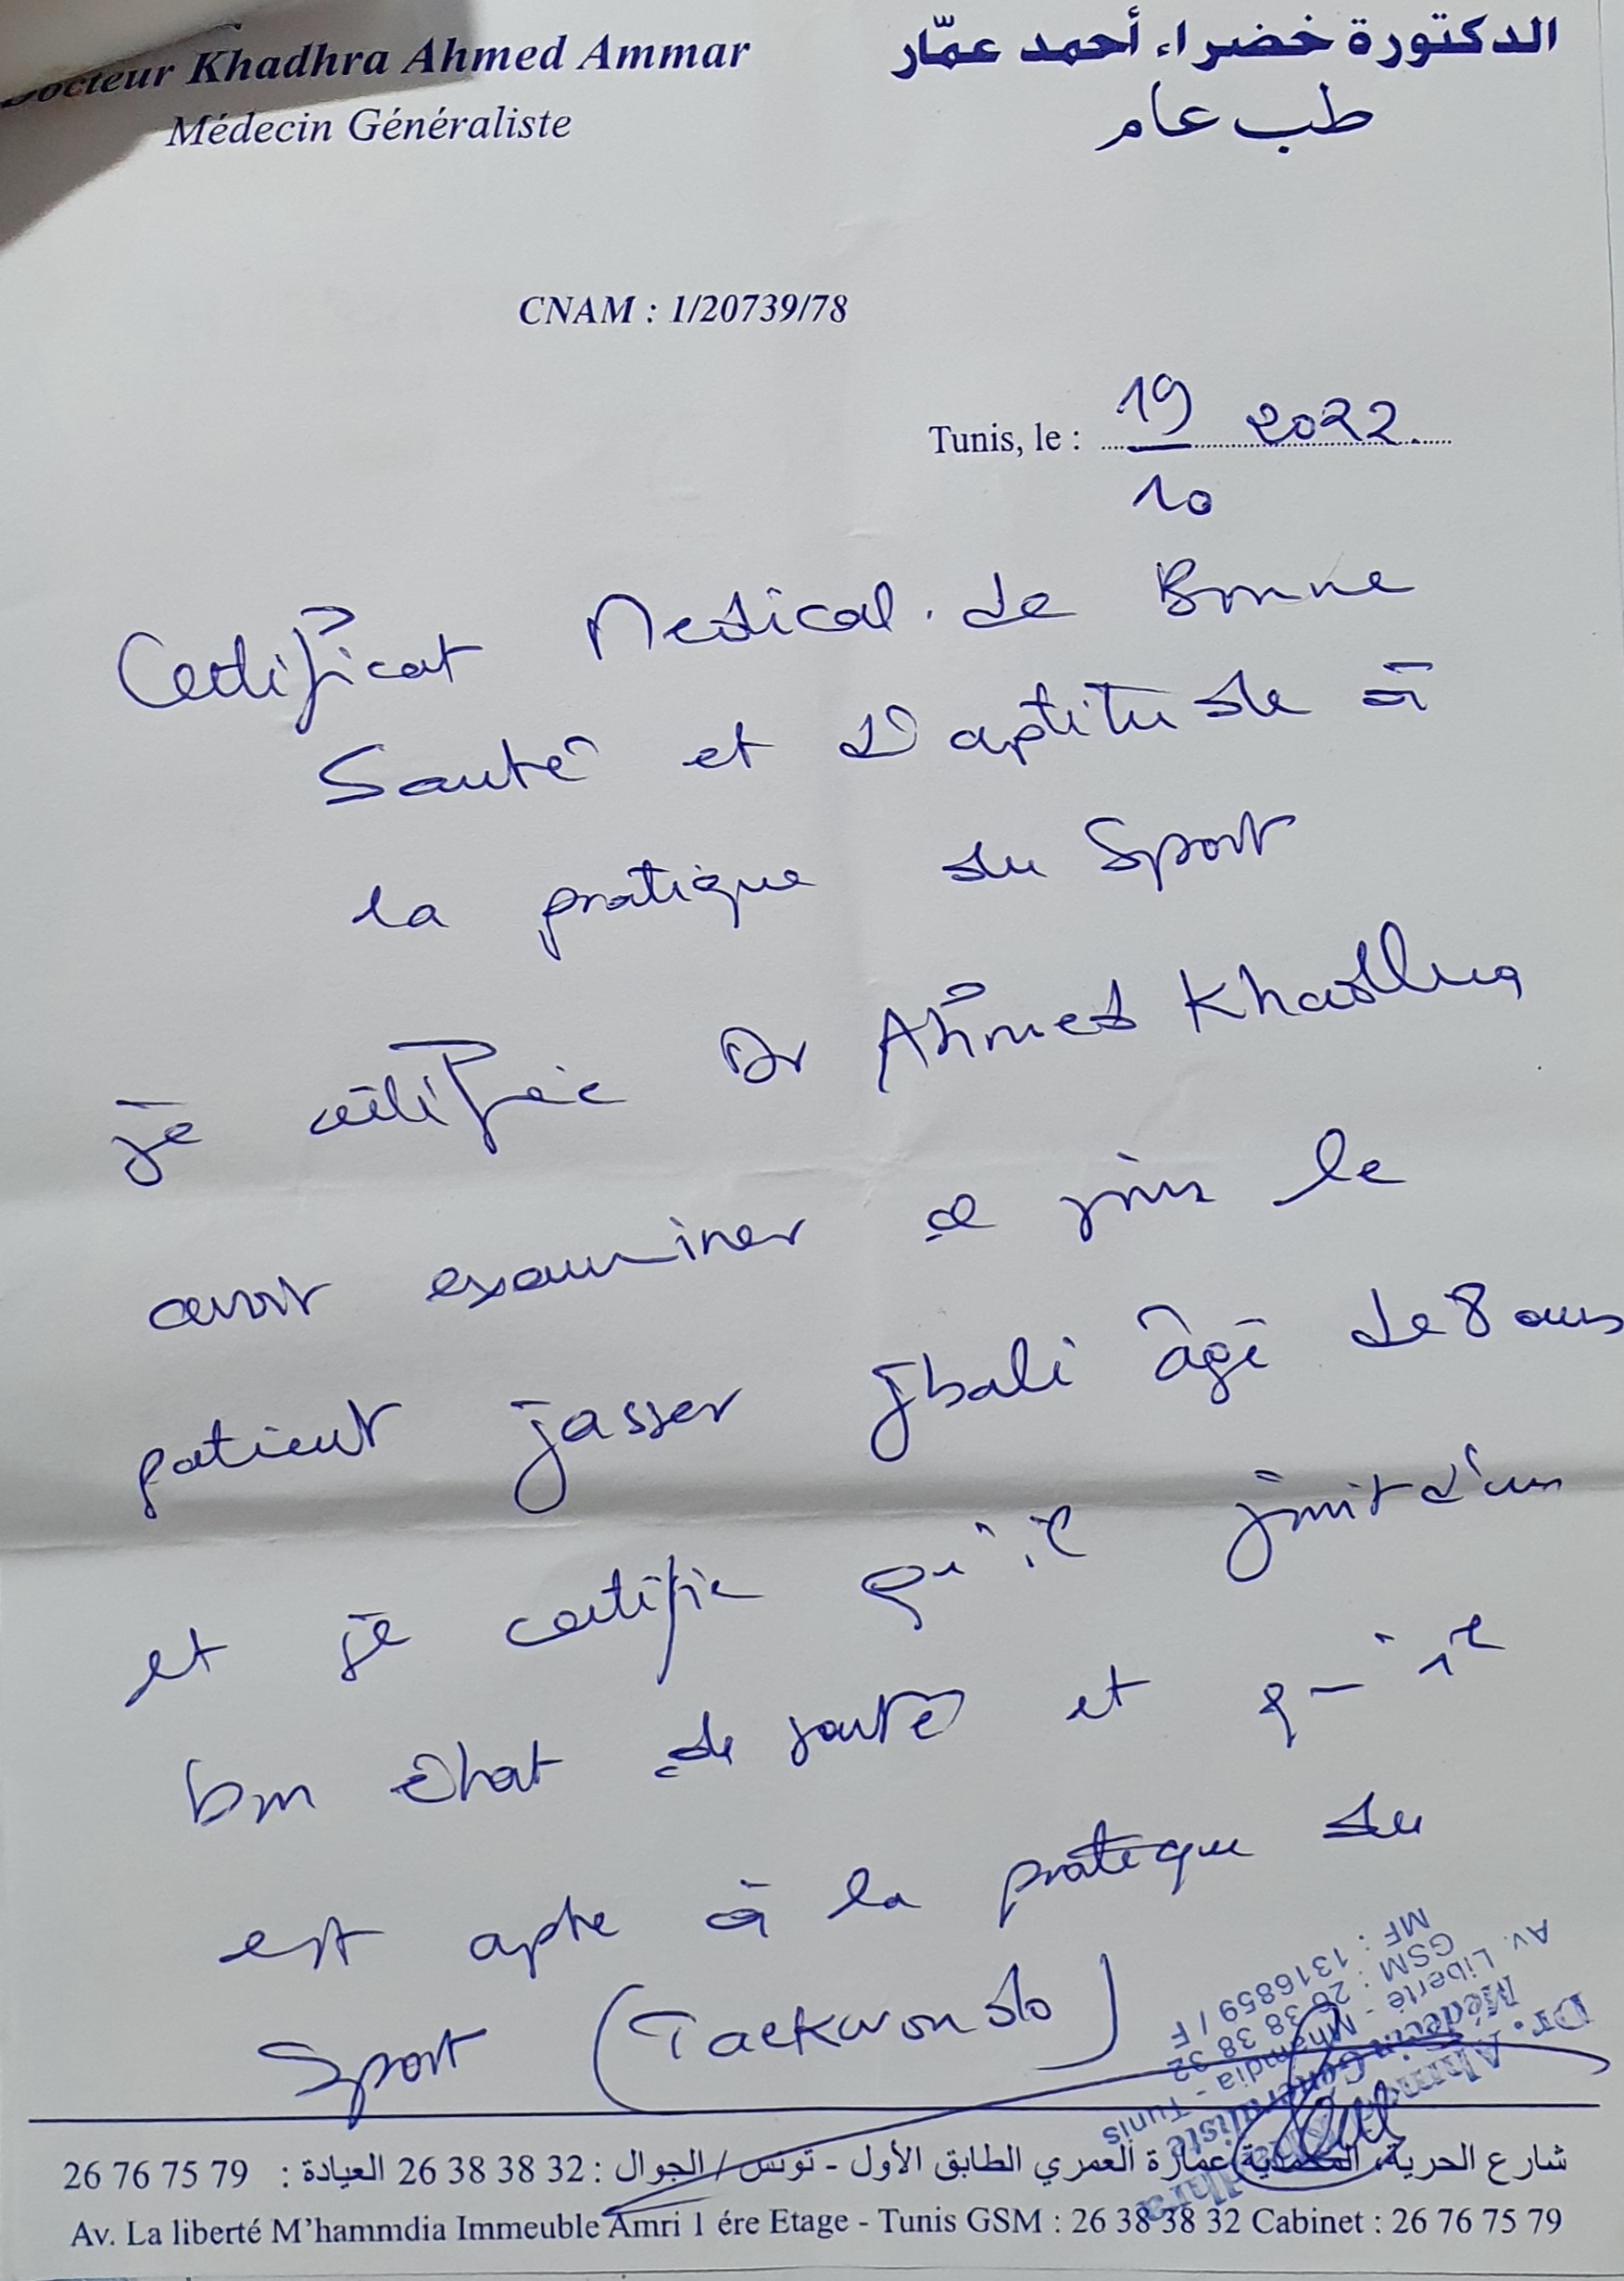 Docteur Khadhra Ahmed Ammar
الدكتورة خضراء أحمد عمّار
Médecin Généraliste
طب عام
CNAM : 1/20739/78
Tunis, le : 19/10 2022
Certificat Medical de Bonne
Santé et d'aptitude à
la pratique du Sport
je certifie Dr Ahmed Khadhra
avoir examiner ce jour le
patient Jasser Jbali âgé de 8 ans
et je certifie qu'il jouit d'un
bon état de santé et qu'il
est apte à la pratique du
Sport (Taekwondo)
Dr. Ahmed Khadhra
Médecin Généraliste
Av. Liberté - Mhamdia - Tunis
GSM : 26 38 38 32
MF : 1316859 / F
شارع الحرية، المحمدية عمارة العمري الطابق الأول - تونس / الجوال : 32 38 38 26 العيادة : 79 75 76 26
Av. La liberté M'hammdia Immeuble Amri 1 ére Etage - Tunis GSM : 26 38 38 32 Cabinet : 26 76 75 79